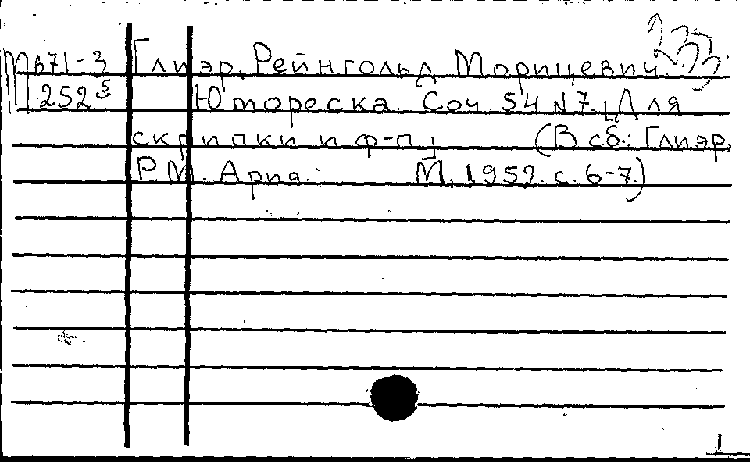 233
Мв71-3 Глиэр, Рейнгольд Морицевич.
252⁵ Юмореска. Соч. 54 №7. [Для
скрипки и ф-п.] (В сб.: Глиэр,
Р.М. Ария. М. 1952. с. 6-7.)
1